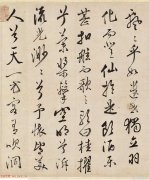 飄飄乎如遺世獨立羽
化而登仙於是飲酒樂
甚扣舷而歌之歌曰桂櫂
兮蘭槳擊空明兮泝
流光渺渺兮予懷望美
人兮天一方客有吹洞